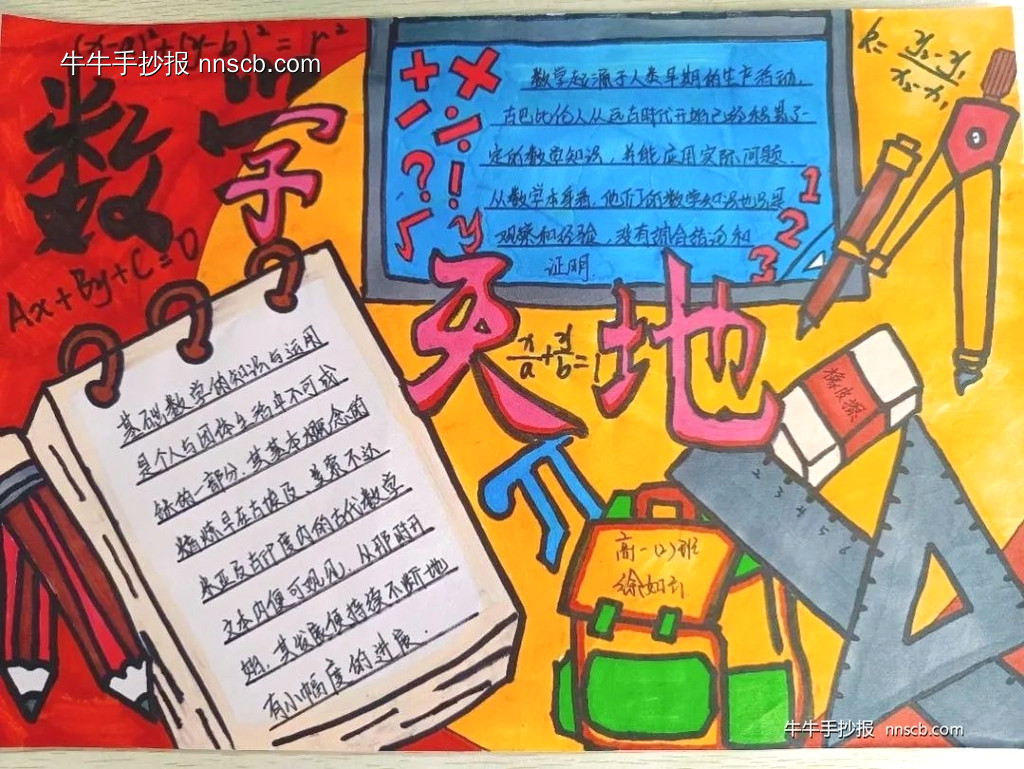 牛牛手抄报 nnscb.com
数学
天地
Ax+By+C=0
x/a+y/b=1
k=
数学起源于人类早期的生产活动,
古巴比伦人从远古时代开始已经积累了一
定的数学知识,并能应用实际问题.
从数学本身看,他们的数学知识也只是
观察和经验,没有综合结论和
证明.
+ ×
- ÷
? !
√ y
1
2
3
基础数学的知识与运用
是个人与团体生活中不可或
缺的一部分.其基本概念的
精炼早在古埃及、美索不达
米亚及古印度内的古代数学
文本内便可观见,从那时开
始,其发展便持续不断地
有小幅度的进展.
π
橡皮擦
2 3 4 5 6
高一(2)班
牛牛手抄报 nnscb.com